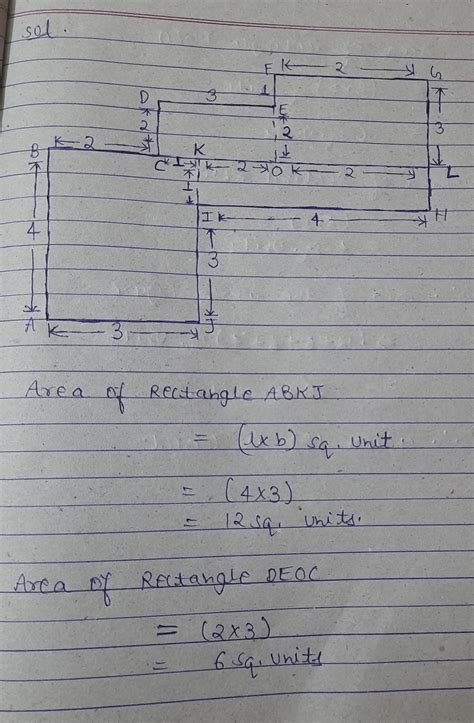 sol.
F 2 G
D 3 1 E
2 2 3
B 2 C 1 K 2 O 2 L
1
I 4 H
4 3
A 3 J
Area of Rectangle ABKJ
= (l×b) sq. unit.
= (4×3)
= 12 sq. units.
Area of Rectangle DEOC
= (2×3)
= 6 sq. units